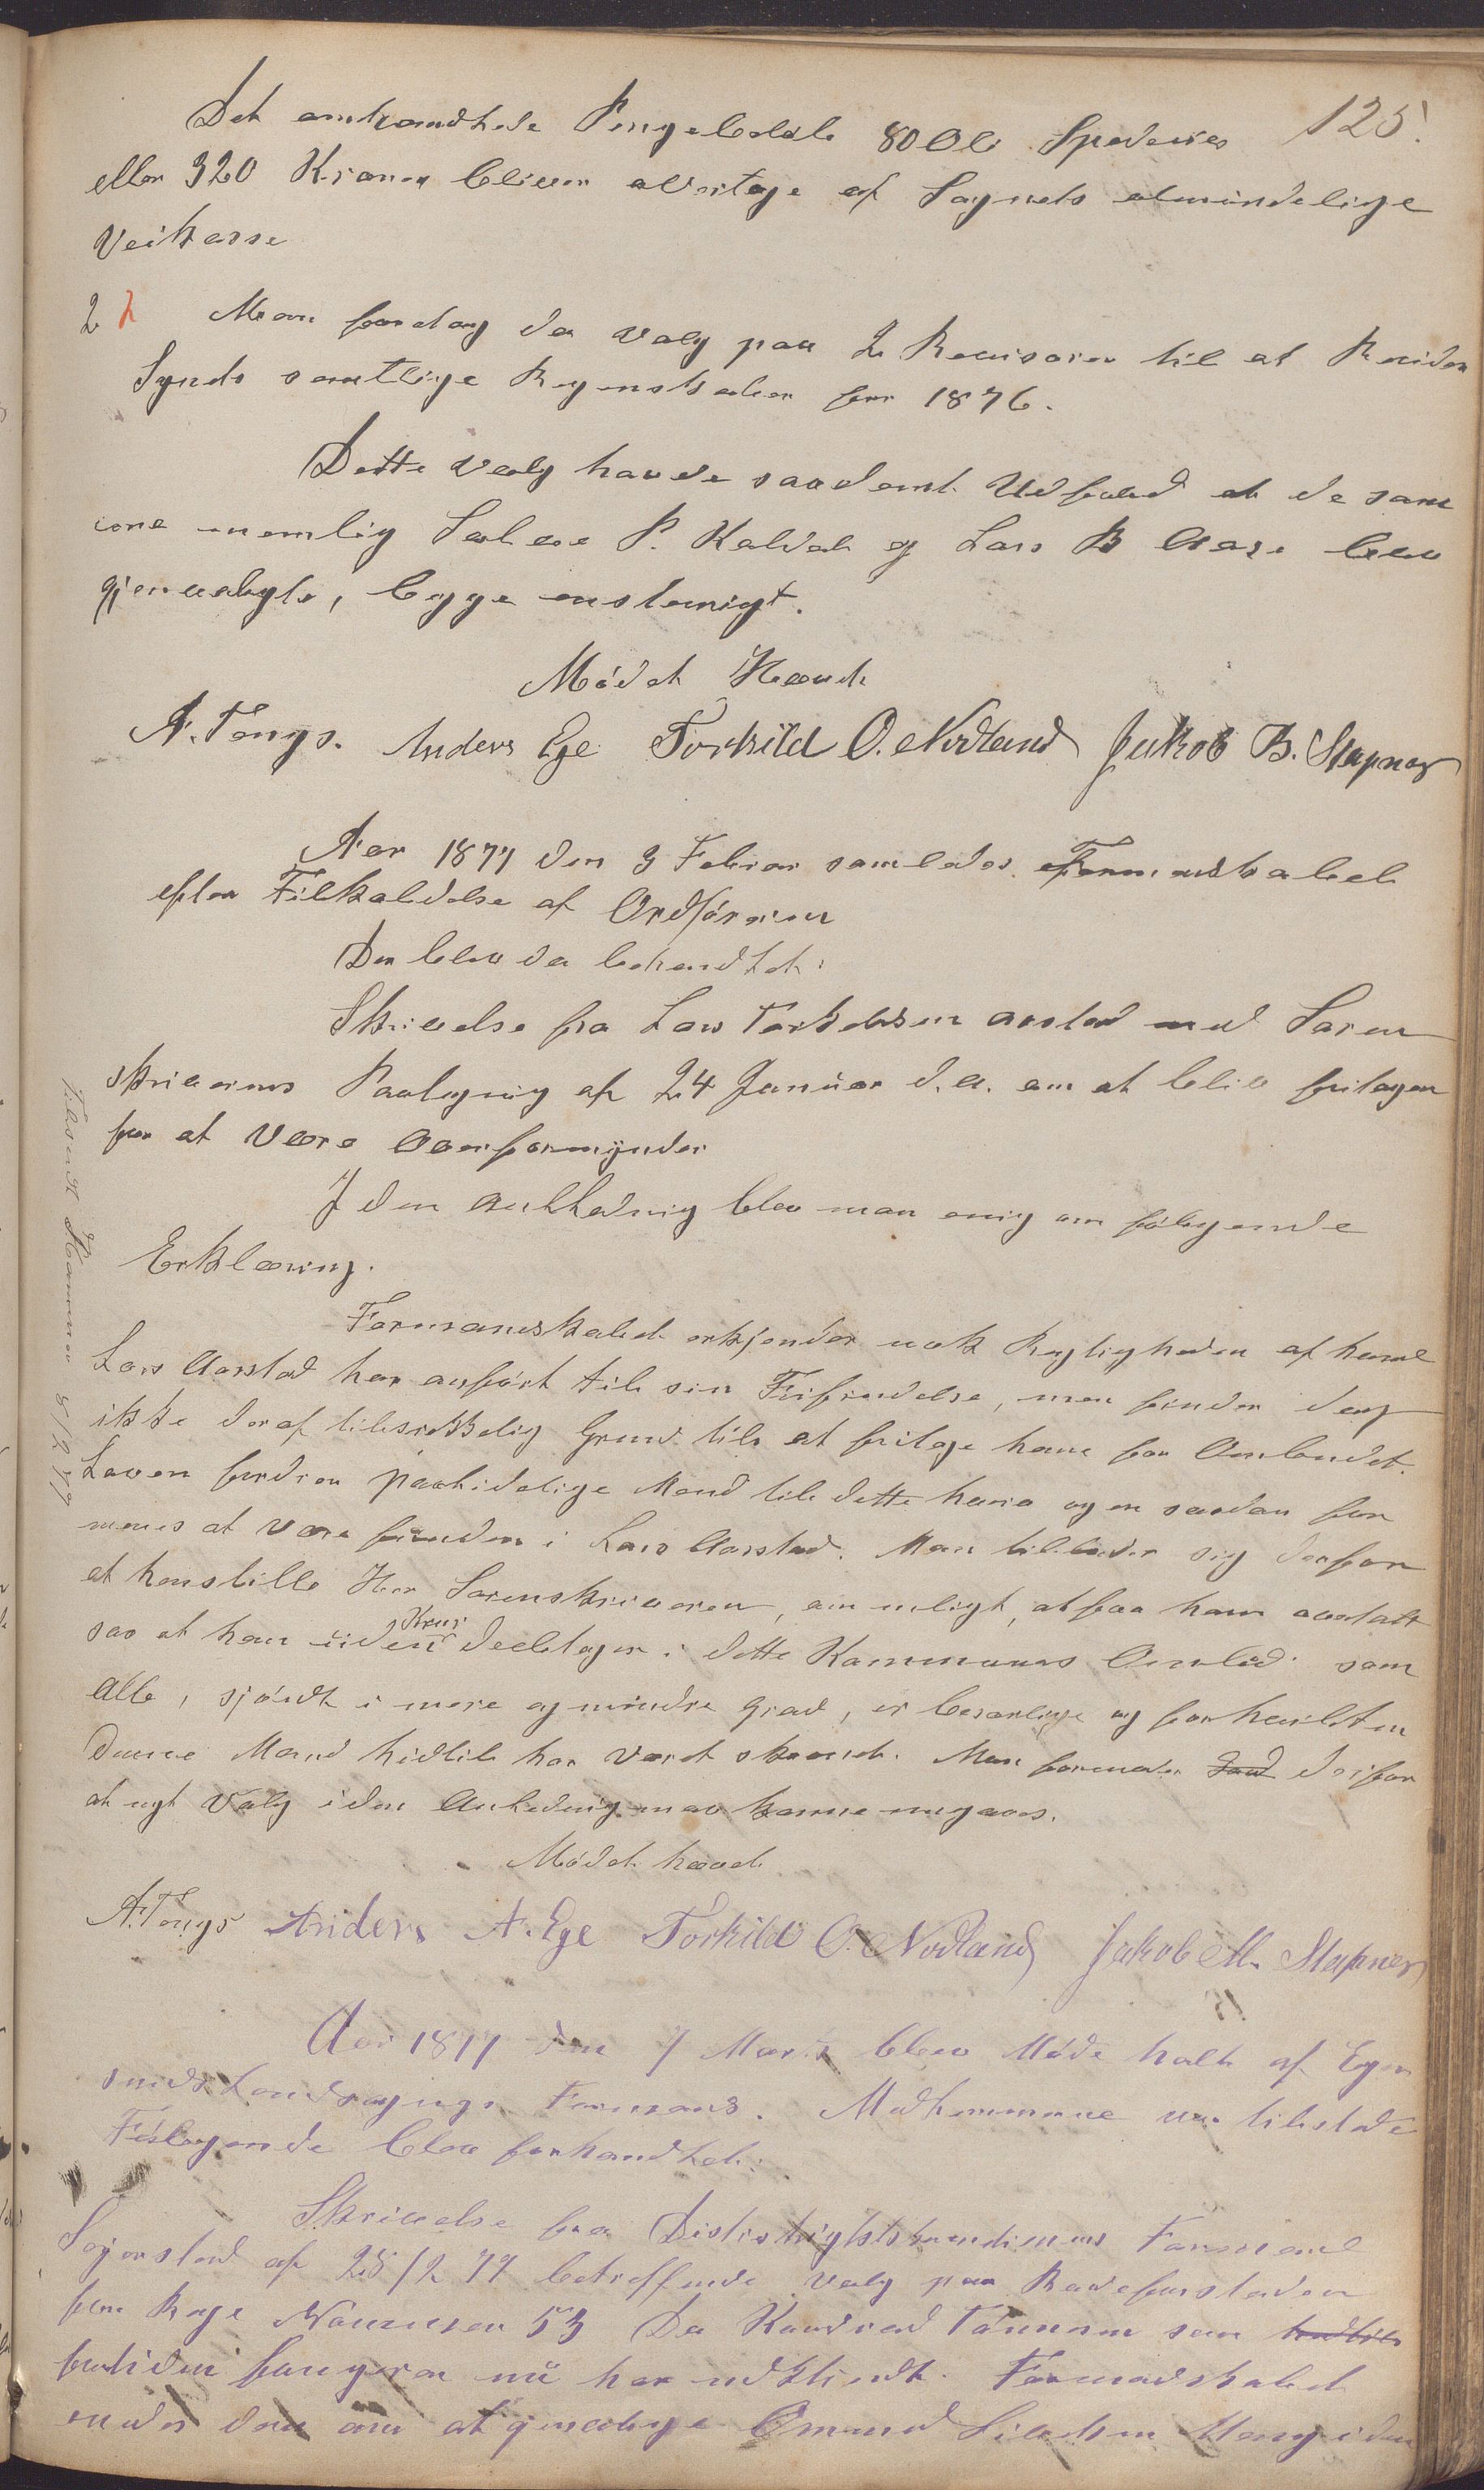 125.
Det omhandlede Pengebeløb 80 Spedeires
eller 320 Kroner bliver at vertage af Sognets almindelige
Veikasse
2 Man foretog da valg paa 2 Revisorer til at Revidere
Synds samtlige Regenskaber for 1876.
Dette Valg havde saadent Udfald at de sam
me nemlig P. Kaldal og Lars B Aase blev
gjenvalgte, begge enstemigt.
Mödet Hævet
A. Tengs. Anders Ege Torkild O. Nodland Jakob B. Stapnes
Aar 1877 den 3 Febrar samledes Formandskabet
efter Tilkaldelse af Ordförerern
Der blev da behandlet:
Skrivelse fra Lars Torkelsen Aarstad med Soren
skriverens Paategning af 24 Januar d.A. om at bliv fritagen
for at Være Overformynder
I den Anledning blev man enig om fölgende
Erklæring.
Formandskabet erkjender nok Rigtigheden af hvad
Lars Aarstad har anfört til sin Frifindelse, men finder dog
ikke deraf tilstrekkelig Grund til at fritage ham for Ombudet.
Loven fordrer paalidelige Mend til dette hverv og en saadan for
menes at Være funden i Lars Aarstad. Man tillader sig derfor
at henstille Herr Sorenskriveren, om muligt, at faa ham
saa at han uden deeltager i dette Kommunes Ombud som
Alle, sjöndt i mere og mindre Grad, er besværlige og for hvilken
denne Mand hidtil har Været skaanet. Man formener derfor
at nyt Valg i den Anledning maa kunne
Mödet hævet
A. Tengs Anders A. Ege Torkild O. Nodland Jakob M. Stapnes
Aar 1877 den 7 Marts blev Möde holt af Eger
sunds Landsogngs Formand. Medlemmerne var tilstede
Fölgende blev forhandlet:
Skrivelse fra Distriktigtskomdiones Formand
Sogerstad af 28/2 77 betreffende Valg paa Rodeforstander
for Roge 53 Da som
fortiden fungerer nu har Formandskabet